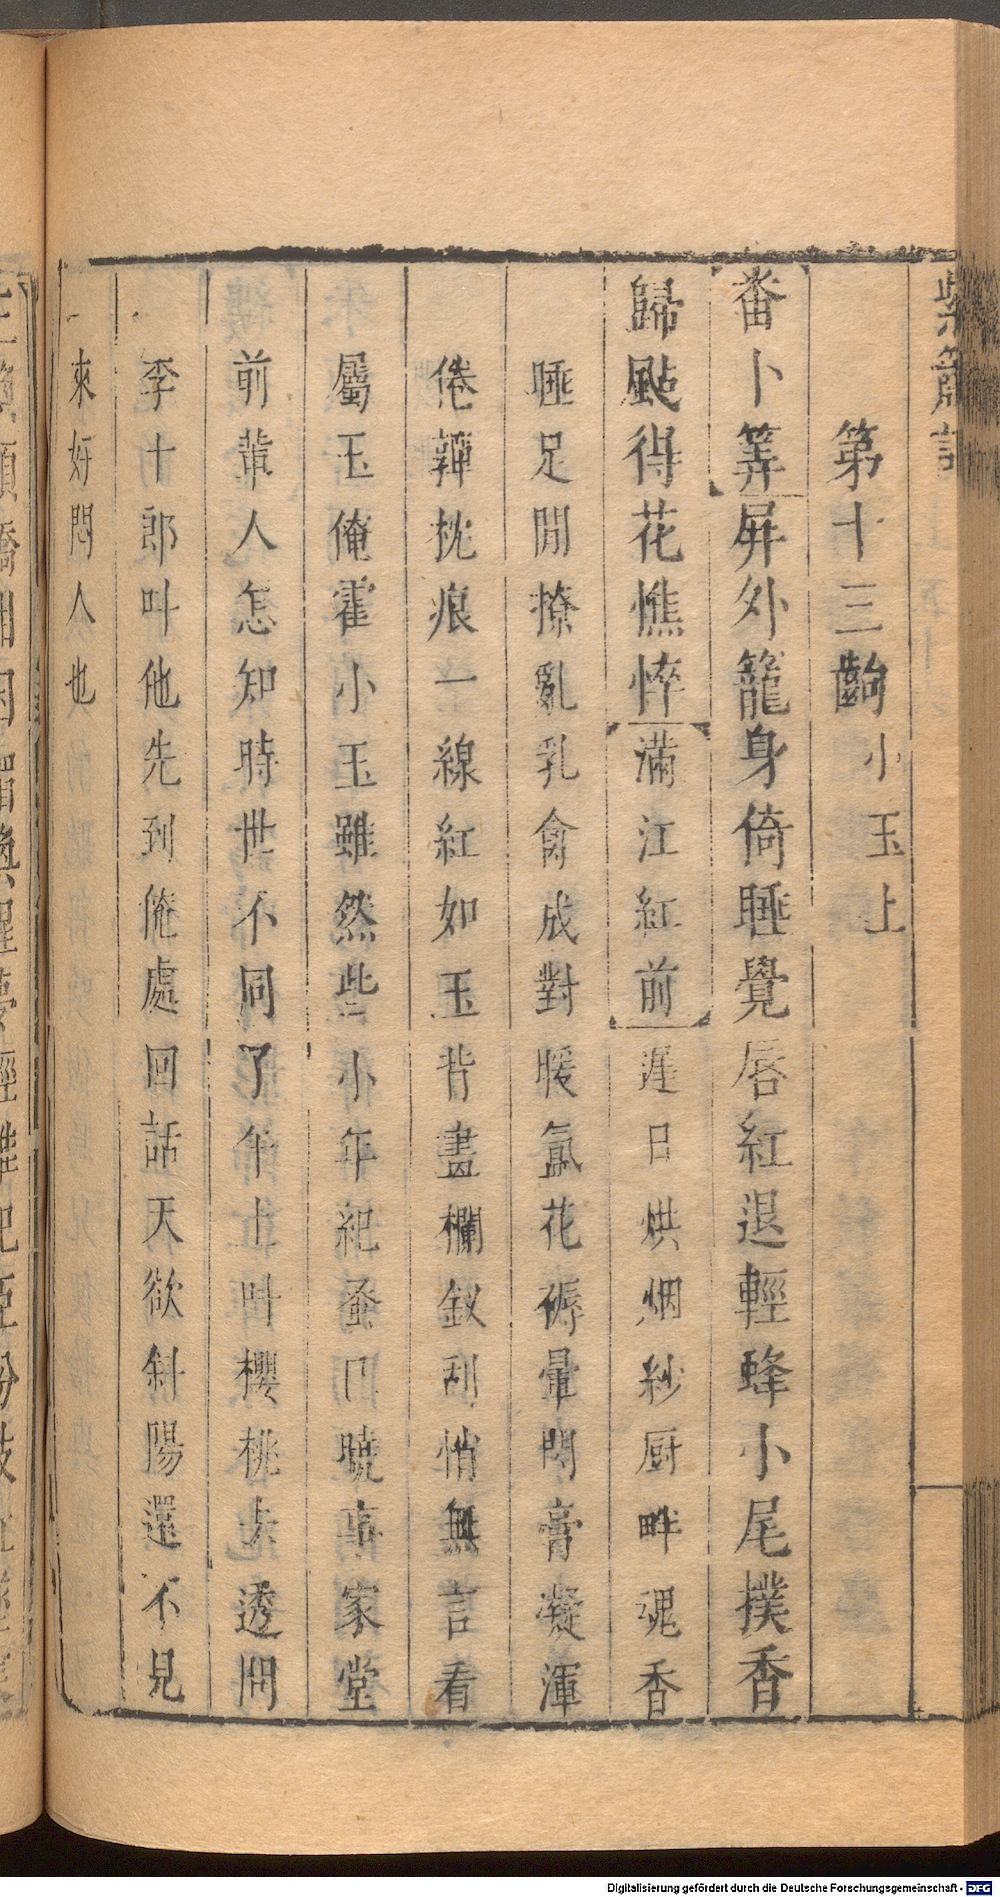 紫簫記
第十三齣 小玉上
番卜筭屏外籠身倚睡覺唇紅退輕蜂小尾撲香
歸颭得花憔悴滿江紅前遲日烘烟紗厨畔魂香
睡足閒撩亂乳禽成對暖氳花褥暈閑膏凝渾
倦亸枕痕一線紅如玉背畫欄釵刮悄無言看
屬玉俺霍小玉雖然些小年紀蚤曉事家堂
前輩人怎知時世不同了年十叶櫻桃步透問
李十郎叶他先到俺處回話天欲斜陽還不見
來好悶人也
Digitalisierung gefördert durch die Deutsche Forschungsgemeinschaft - DFG